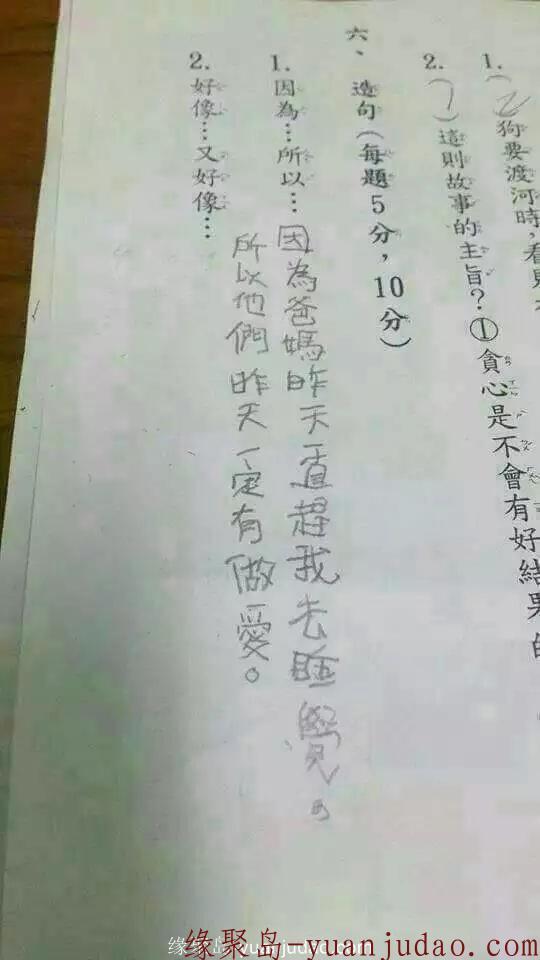 1.(2)狗要渡河時，看見
2.(1)這則故事的主旨？①貪心是不會有好結果的
六、造句（每題5分，10分）
1.因為…所以…因為爸媽昨天一直趕我去睡覺。
所以他們昨天一定有做愛。
2.好像…又好像…
缘聚岛-yuanjudao.com
缘聚岛-yuanjudao.com